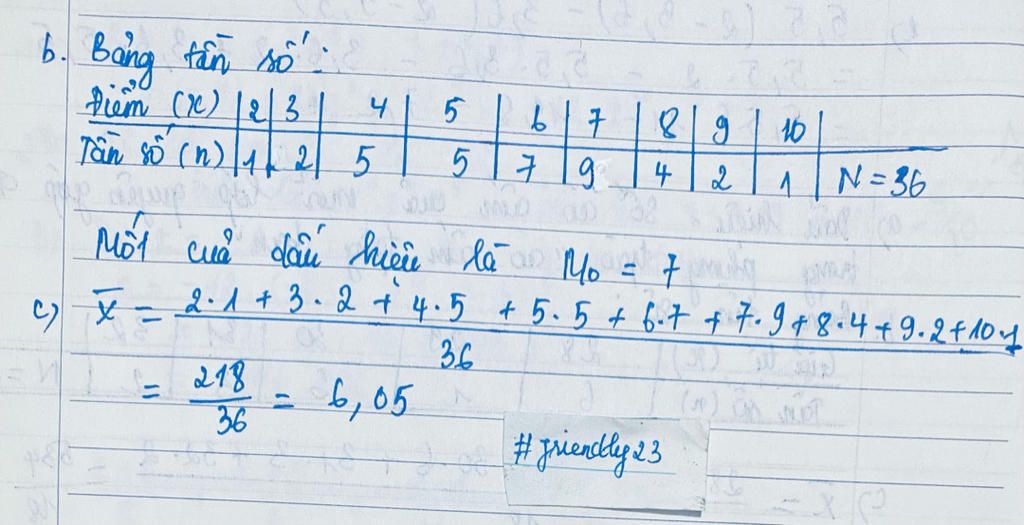 b. Bảng tần số:
Điểm (x) | 2 | 3 | 4 | 5 | 6 | 7 | 8 | 9 | 10 |
Tần số (n) | 1 | 2 | 5 | 5 | 7 | 9 | 4 | 2 | 1 | N = 36
Mốt của dấu hiệu là M₀ = 7
c) x̄ = 2·1 + 3·2 + 4·5 + 5·5 + 6·7 + 7·9 + 8·4 + 9·2 + 10·1
36
= 218/36 = 6,05
#friendly23